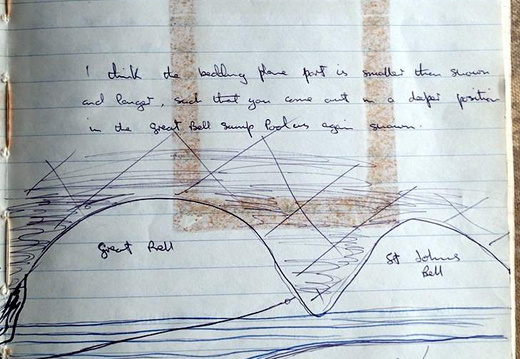 I think the bedding plane part is smaller than shown
and longer, such that you come out in a deeper position
in the Great Bell sump Pool as again shown.
Great Bell
St Johns
Bell